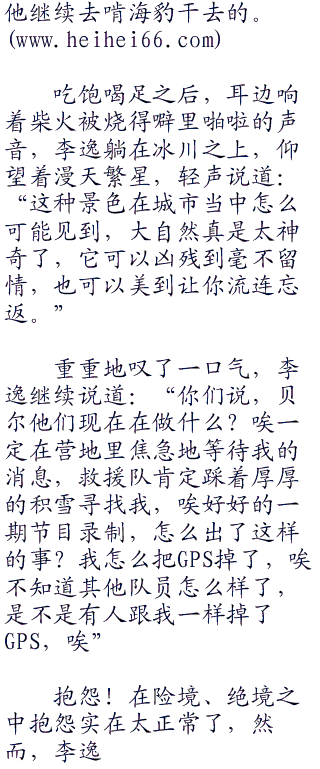 他继续去啃海豹干去的。
(www.heihei66.com)
吃饱喝足之后，耳边响
着柴火被烧得噼里啪啦的声
音，李逸躺在冰川之上，仰
望着漫天繁星，轻声说道：
“这种景色在城市当中怎么
可能见到，大自然真是太神
奇了，它可以凶残到毫不留
情，也可以美到让你流连忘
返。”
重重地叹了一口气，李
逸继续说道：“你们说，贝
尔他们现在在做什么？唉一
定在营地里焦急地等待我的
消息，救援队肯定踩着厚厚
的积雪寻找我，唉好好的一
期节目录制，怎么出了这样
的事？我怎么把GPS掉了，唉
不知道其他队员怎么样了，
是不是有人跟我一样掉了
GPS，唉”
抱怨！在险境、绝境之
中抱怨实在太正常了，然
而，李逸